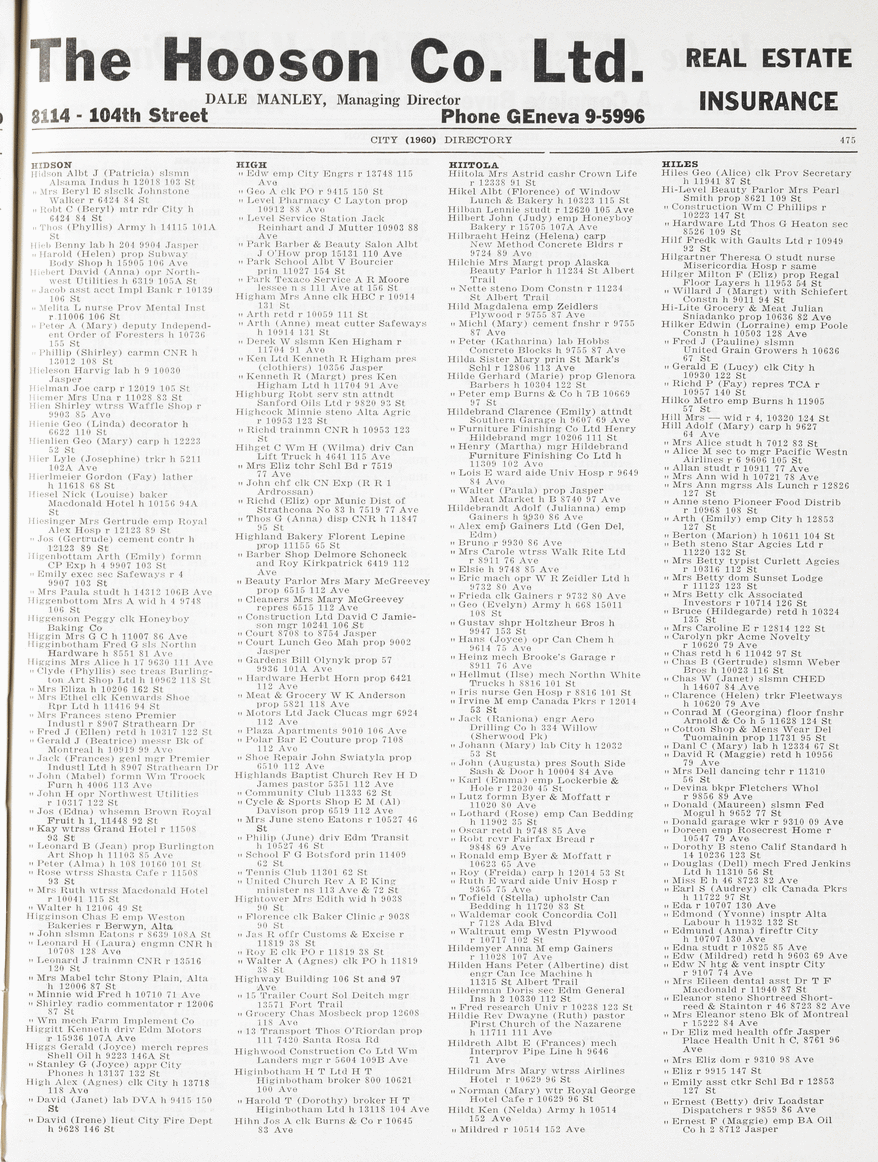 The Hooson Co. Ltd.
REAL ESTATE
INSURANCE
DALE MANLEY, Managing Director
8114 - 104th Street
Phone GEneva 9-5996
CITY (1960) DIRECTORY
475
HIDSON
Hidson Albt J (Patricia) slsmn
Alsama Indus h 12018 103 St
" Mrs Beryl E slsclk Johnstone
Walker r 6424 84 St
" Robt C (Beryl) mtr rdr City h
6424 84 St
" Thos (Phyllis) Army h 14115 101A
St
Hieb Benny lab h 204 9904 Jasper
" Harold (Helen) prop Subway
Body Shop h 15905 106 Ave
Hiebert David (Anna) opr North-
west Utilities h 6319 105A St
" Jacob asst acct Impl Bank r 10139
106 St
" Melita L nurse Prov Mental Inst
r 11006 106 St
" Peter A (Mary) deputy Independ-
ent Order of Foresters h 10736
155 St
" Phillip (Shirley) carmn CNR h
13012 108 St
Hieleson Harvig lab h 9 10030
Jasper
Hielman Joe carp r 12019 105 St
Hiemer Mrs Una r 11028 83 St
Hien Shirley wtrss Waffle Shop r
9903 85 Ave
Hienie Geo (Linda) decorator h
6622 110 St
Hienlien Geo (Mary) carp h 12223
52 St
Hier Lyle (Josephine) trkr h 5211
102A Ave
Hierlmeier Gordon (Fay) lather
h 11618 68 St
Hiesel Nick (Louise) baker
Macdonald Hotel h 10156 94A
St
Hiesinger Mrs Gertrude emp Royal
Alex Hosp r 12123 89 St
" Jos (Gertrude) cement contr h
12123 89 St
Higenbottam Arth (Emily) formn
CP Exp h 4 9907 103 St
" Emily exec sec Safeways r 4
9907 103 St
" Mrs Paula studt h 14312 106B Ave
Higgenbottom Mrs A wid h 4 9748
106 St
Higgenson Peggy clk Honeyboy
Baking Co
Higgin Mrs G C h 11007 86 Ave
Higginbotham Fred G sls Northn
Hardware h 8551 81 Ave
Higgins Mrs Alice h 17 9630 111 Ave
" Clyde (Phyllis) sec treas Burling-
ton Art Shop Ltd h 10962 118 St
" Mrs Eliza h 10206 162 St
" Mrs Ethel clk Kenwards Shoe
Rpr Ltd h 11416 94 St
" Mrs Frances steno Premier
Industl r 8907 Strathearn Dr
" Fred J (Ellen) retd h 10317 122 St
" Gerald J (Beatrice) messr Bk of
Montreal h 10919 99 Ave
" Jack (Frances) genl mgr Premier
Industl Ltd h 8907 Strathearn Dr
" John (Mabel) formn Wm Troock
Furn h 4006 113 Ave
" John H opr Northwest Utilities
r 10317 122 St
" Jos (Edna) whsemn Brown Royal
Fruit h 1, 11448 92 St
" Kay wtrss Grand Hotel r 11508
93 St
" Leonard B (Jean) prop Burlington
Art Shop h 11103 85 Ave
" Peter (Alma) h 108 10160 101 St
" Rose wtrss Shasta Cafe r 11508
93 St
" Mrs Ruth wtrss Macdonald Hotel
r 10041 115 St
" Walter h 12106 49 St
Higginson Chas E emp Weston
Bakeries r Berwyn, Alta
" John slsmn Eatons r 8639 108A St
" Leonard H (Laura) engmn CNR h
10708 128 Ave
" Leonard J trainmn CNR r 13516
120 St
" Mrs Mabel tchr Stony Plain, Alta
h 12006 87 St
" Minnie wid Fred h 10710 71 Ave
" Shirley radio commentator r 12006
87 St
" Wm mech Farm Implement Co
Higgitt Kenneth driv Edm Motors
r 15936 107A Ave
Higgs Gerald (Joyce) merch repres
Shell Oil h 9223 146A St
" Stanley G (Joyce) appr City
Phones h 13137 132 St
High Alex (Agnes) clk City h 13718
118 Ave
" David (Janet) lab DVA h 9415 150
St
" David (Irene) lieut City Fire Dept
h 9628 146 St
HIGH
" Edw emp City Engrs r 13748 115
Ave
" Geo A clk PO r 9415 150 St
" Level Pharmacy C Layton prop
10912 88 Ave
" Level Service Station Jack
Reinhart and J Mutter 10903 88
Ave
" Park Barber & Beauty Salon Albt
J O'How prop 15131 110 Ave
" Park School Albt V Bourcier
prin 11027 154 St
" Park Texaco Service A R Moore
lessee n s 111 Ave at 156 St
Higham Mrs Anne clk HBC r 10914
131 St
" Arth retd r 10059 111 St
" Arth (Anne) meat cutter Safeways
h 10914 131 St
" Derek W slsmn Ken Higham r
11704 91 Ave
" Ken Ltd Kenneth R Higham pres
(clothiers) 10356 Jasper
" Kenneth R (Margt) pres Ken
Higham Ltd h 11704 91 Ave
Highburg Robt serv stn attndt
Sanford Oils Ltd r 9820 93 St
Highcock Minnie steno Alta Agric
r 10953 123 St
" Richd trainmn CNR h 10953 123
St
Highet C Wm H (Wilma) driv Can
Lift Truck h 4641 115 Ave
" Mrs Eliz tchr Schl Bd r 7519
77 Ave
" John chf clk CN Exp (R R 1
Ardrossan)
" Richd (Eliz) opr Munic Dist of
Strathcona No 83 h 7519 77 Ave
" Thos G (Anna) disp CNR h 11847
95 St
Highland Bakery Florent Lepine
prop 11155 65 St
" Barber Shop Delmore Schoneck
and Roy Kirkpatrick 6419 112
Ave
" Beauty Parlor Mrs Mary McGreevey
prop 6515 112 Ave
" Cleaners Mrs Mary McGreevey
repres 6515 112 Ave
" Construction Ltd David C Jamie-
son mgr 10241 106 St
" Court 8708 to 8754 Jasper
" Court Lunch Geo Mah prop 9002
Jasper
" Gardens Bill Olynyk prop 57
9936 101A Ave
" Hardware Herbt Horn prop 6421
112 Ave
" Meat & Grocery W K Anderson
prop 5821 118 Ave
" Motors Ltd Jack Clucas mgr 6924
112 Ave
" Plaza Apartments 9010 106 Ave
" Polar Bar E Couture prop 7108
112 Ave
" Shoe Repair John Swiatyla prop
6510 112 Ave
Highlands Baptist Church Rev H D
James pastor 5351 112 Ave
" Community Club 11333 62 St
" Cycle & Sports Shop E M (Al)
Davison prop 6519 112 Ave
" Mrs June steno Eatons r 10527 46
St
" Philip (June) driv Edm Transit
h 10527 46 St
" School F G Botsford prin 11409
62 St
" Tennis Club 11301 62 St
" United Church Rev A E King
minister ns 113 Ave & 72 St
Hightower Mrs Edith wid h 9038
90 St
" Florence clk Baker Clinic r 9038
90 St
" Jas R offr Customs & Excise r
11819 38 St
" Roy E clk PO r 11819 38 St
" Walter A (Agnes) clk PO h 11819
38 St
Highway Building 106 St and 97
Ave
" 15 Trailer Court Sol Deitch mgr
13571 Fort Trail
" Grocery Chas Mosbeck prop 12608
118 Ave
" 13 Transport Thos O'Riordan prop
111 7420 Santa Rosa Rd
Highwood Construction Co Ltd Wm
Landers mgr r 5604 109B Ave
Higinbotham H T Ltd H T
Higinbotham broker 800 10621
100 Ave
" Harold T (Dorothy) broker H T
Higinbotham Ltd h 13118 104 Ave
Hihn Jos A clk Burns & Co r 10645
83 Ave
HIITOLA
Hiitola Mrs Astrid cashr Crown Life
r 12338 91 St
Hikel Albt (Florence) of Window
Lunch & Bakery h 10323 115 St
Hilban Lennie studt r 12620 105 Ave
Hilbert John (Judy) emp Honeyboy
Bakery r 15705 107A Ave
Hilbraeht Heinz (Helena) carp
New Method Concrete Bldrs r
9724 89 Ave
Hilchie Mrs Margt prop Alaska
Beauty Parlor h 11234 St Albert
Trail
" Nette steno Dom Constn r 11234
St Albert Trail
Hild Magdalena emp Zeidlers
Plywood r 9755 87 Ave
" Michl (Mary) cement fnshr r 9755
87 Ave
" Peter (Katharina) lab Hobbs
Concrete Blocks h 9755 87 Ave
Hilda Sister Mary prin St Mark's
Schl r 12806 113 Ave
Hilde Gerhard (Marie) prop Glenora
Barbers h 10304 122 St
" Peter emp Burns & Co h 7B 10669
97 St
Hildebrand Clarence (Emily) attndt
Southern Garage h 9607 69 Ave
" Furniture Finishing Co Ltd Henry
Hildebrand mgr 10206 111 St
" Henry (Martha) mgr Hildebrand
Furniture Finishing Co Ltd h
11309 102 Ave
" Lois E ward aide Univ Hosp r 9649
84 Ave
" Walter (Paula) prop Jasper
Meat Market h B 8740 97 Ave
Hildebrandt Adolf (Julianna) emp
Gainers h 9930 86 Ave
" Alex emp Gainers Ltd (Gen Del,
Edm)
" Bruno r 9930 86 Ave
" Mrs Carole wtrss Walk Rite Ltd
r 8911 76 Ave
" Elsie h 9748 85 Ave
" Eric mach opr W R Zeidler Ltd h
9732 80 Ave
" Frieda clk Gainers r 9732 80 Ave
" Geo (Evelyn) Army h 668 15011
108 St
" Gustav shpr Holtzheur Bros h
9947 153 St
" Hans (Joyce) opr Can Chem h
9614 75 Ave
" Heinz mech Brooke's Garage r
8911 76 Ave
" Hellmut (Ilse) mech Northn White
Trucks h 8816 101 St
" Iris nurse Gen Hosp r 8816 101 St
" Irvine M emp Canada Pkrs r 12014
53 St
" Jack (Raniona) engr Aero
Drilling Co h 334 Willow
(Sherwood Pk)
" Johann (Mary) lab City h 12032
53 St
" John (Augusta) pres South Side
Sash & Door h 10004 84 Ave
" Karl (Emma) emp Lockerbie &
Hole r 12030 45 St
" Lutz formn Byer & Moffatt r
11020 80 Ave
" Lothard (Rose) emp Can Bedding
h 11902 35 St
" Oscar retd h 9748 85 Ave
" Robt rcvr Fairfax Bread r
9848 69 Ave
" Ronald emp Byer & Moffatt r
10623 65 Ave
" Roy (Freida) carp h 12014 53 St
" Ruth E ward aide Univ Hosp r
9365 75 Ave
" Tofield (Stella) upholstr Can
Bedding h 11720 83 St
" Waldemar cook Concordia Coll
r 7128 Ada Blvd
" Waltraut emp Westn Plywood
r 10717 102 St
Hildemyer Anna M emp Gainers
r 11028 107 Ave
Hilden Hans Peter (Albertine) dist
engr Can Ice Machine h
11315 St Albert Trail
Hilderman Doris sec Edm General
Ins h 2 10330 112 St
" Fred research Univ r 10238 123 St
Hildie Rev Dwayne (Ruth) pastor
First Church of the Nazarene
h 11711 111 Ave
Hildreth Albt E (Frances) mech
Interprov Pipe Line h 9646
71 Ave
Hildrum Mrs Mary wtrss Airlines
Hotel r 10629 96 St
" Norman (Mary) wtr Royal George
Hotel Cafe r 10629 96 St
Hildt Ken (Nelda) Army h 10514
152 Ave
" Mildred r 10514 152 Ave
HILES
Hiles Geo (Alice) clk Prov Secretary
h 11941 87 St
Hi-Level Beauty Parlor Mrs Pearl
Smith prop 8621 109 St
" Construction Wm C Phillips r
10223 147 St
" Hardware Ltd Thos G Heaton sec
8526 109 St
Hilf Fredk with Gaults Ltd r 10949
92 St
Hilgartner Theresa O studt nurse
Misericordia Hosp r same
Hilger Milton F (Eliz) prop Regal
Floor Layers h 11953 54 St
" Willard J (Margt) with Schiefert
Constn h 9011 94 St
Hi-Lite Grocery & Meat Julian
Sniadanko prop 10636 82 Ave
Hilker Edwin (Lorraine) emp Poole
Constn h 10503 128 Ave
" Fred J (Pauline) slsmn
United Grain Growers h 10636
67 St
" Gerald E (Lucy) clk City h
10930 122 St
" Richd P (Fay) repres TCA r
10957 140 St
Hilko Metro emp Burns h 11905
57 St
Hill Mrs — wid r 4, 10320 124 St
Hill Adolf (Mary) carp h 9627
64 Ave
" Mrs Alice studt h 7012 83 St
" Alice M sec to mgr Pacific Westn
Airlines r 6 9606 105 St
" Allan studt r 10911 77 Ave
" Mrs Ann wid h 10721 78 Ave
" Mrs Ann mgrss Als Lunch r 12826
127 St
" Anne steno Pioneer Food Distrib
r 10968 108 St
" Arth (Emily) emp City h 12853
127 St
" Berton (Marion) h 10611 104 St
" Beth steno Star Agcies Ltd r
11220 132 St
" Mrs Betty typist Curlett Agcies
r 10316 112 St
" Mrs Betty dom Sunset Lodge
r 11123 123 St
" Mrs Betty clk Associated
Investors r 10714 126 St
" Bruce (Hildegarde) retd h 10324
135 St
" Mrs Caroline E r 12814 122 St
" Carolyn pkr Acme Novelty
r 10620 79 Ave
" Chas retd h 6 11042 97 St
" Chas B (Gertrude) slsmn Weber
Bros h 10023 116 St
" Chas W (Janet) slsmn CHED
h 14607 84 Ave
" Clarence (Helen) trkr Fleetways
h 10620 79 Ave
" Conrad M (Georgina) floor fnshr
Arnold & Co h 5 11628 124 St
" Cotton Shop & Mens Wear Del
Tuomainin prop 11731 95 St
" Danl C (Mary) lab h 12334 67 St
" David R (Maggie) retd h 10956
79 Ave
" Mrs Dell dancing tchr r 11310
56 St
" Devina bkpr Fletchers Whol
r 9856 89 Ave
" Donald (Maureen) slsmn Fed
Mogul h 9652 77 St
" Donald garage wkr r 9310 09 Ave
" Doreen emp Rosecrest Home r
10547 79 Ave
" Dorothy B steno Calif Standard h
14 10236 123 St
" Douglas (Dell) mech Fred Jenkins
Ltd h 11310 56 St
" Miss E h 46 8723 82 Ave
" Earl S (Audrey) clk Canada Pkrs
h 11722 97 St
" Eda r 10707 130 Ave
" Edmond (Yvonne) insptr Alta
Labour h 11932 132 St
" Edmund (Anna) fireftr City
h 10707 130 Ave
" Edna studt r 10825 85 Ave
" Edw (Mildred) retd h 9603 69 Ave
" Edw N htg & vent insptr City
r 9107 74 Ave
" Mrs Eileen dental asst Dr T F
Macdonald r 11940 87 St
" Eleanor steno Shortreed Short-
reed & Stainton r 46 8723 82 Ave
" Mrs Eleanor steno Bk of Montreal
r 15222 84 Ave
" Dr Eliz med health offr Jasper
Place Health Unit h C, 8761 96
Ave
" Mrs Eliz dom r 9310 98 Ave
" Eliz r 9915 147 St
" Emily asst ctkr Schl Bd r 12853
127 St
" Ernest (Betty) driv Loadstar
Dispatchers r 9859 86 Ave
" Ernest F (Maggie) emp BA Oil
Co h 2 8712 Jasper